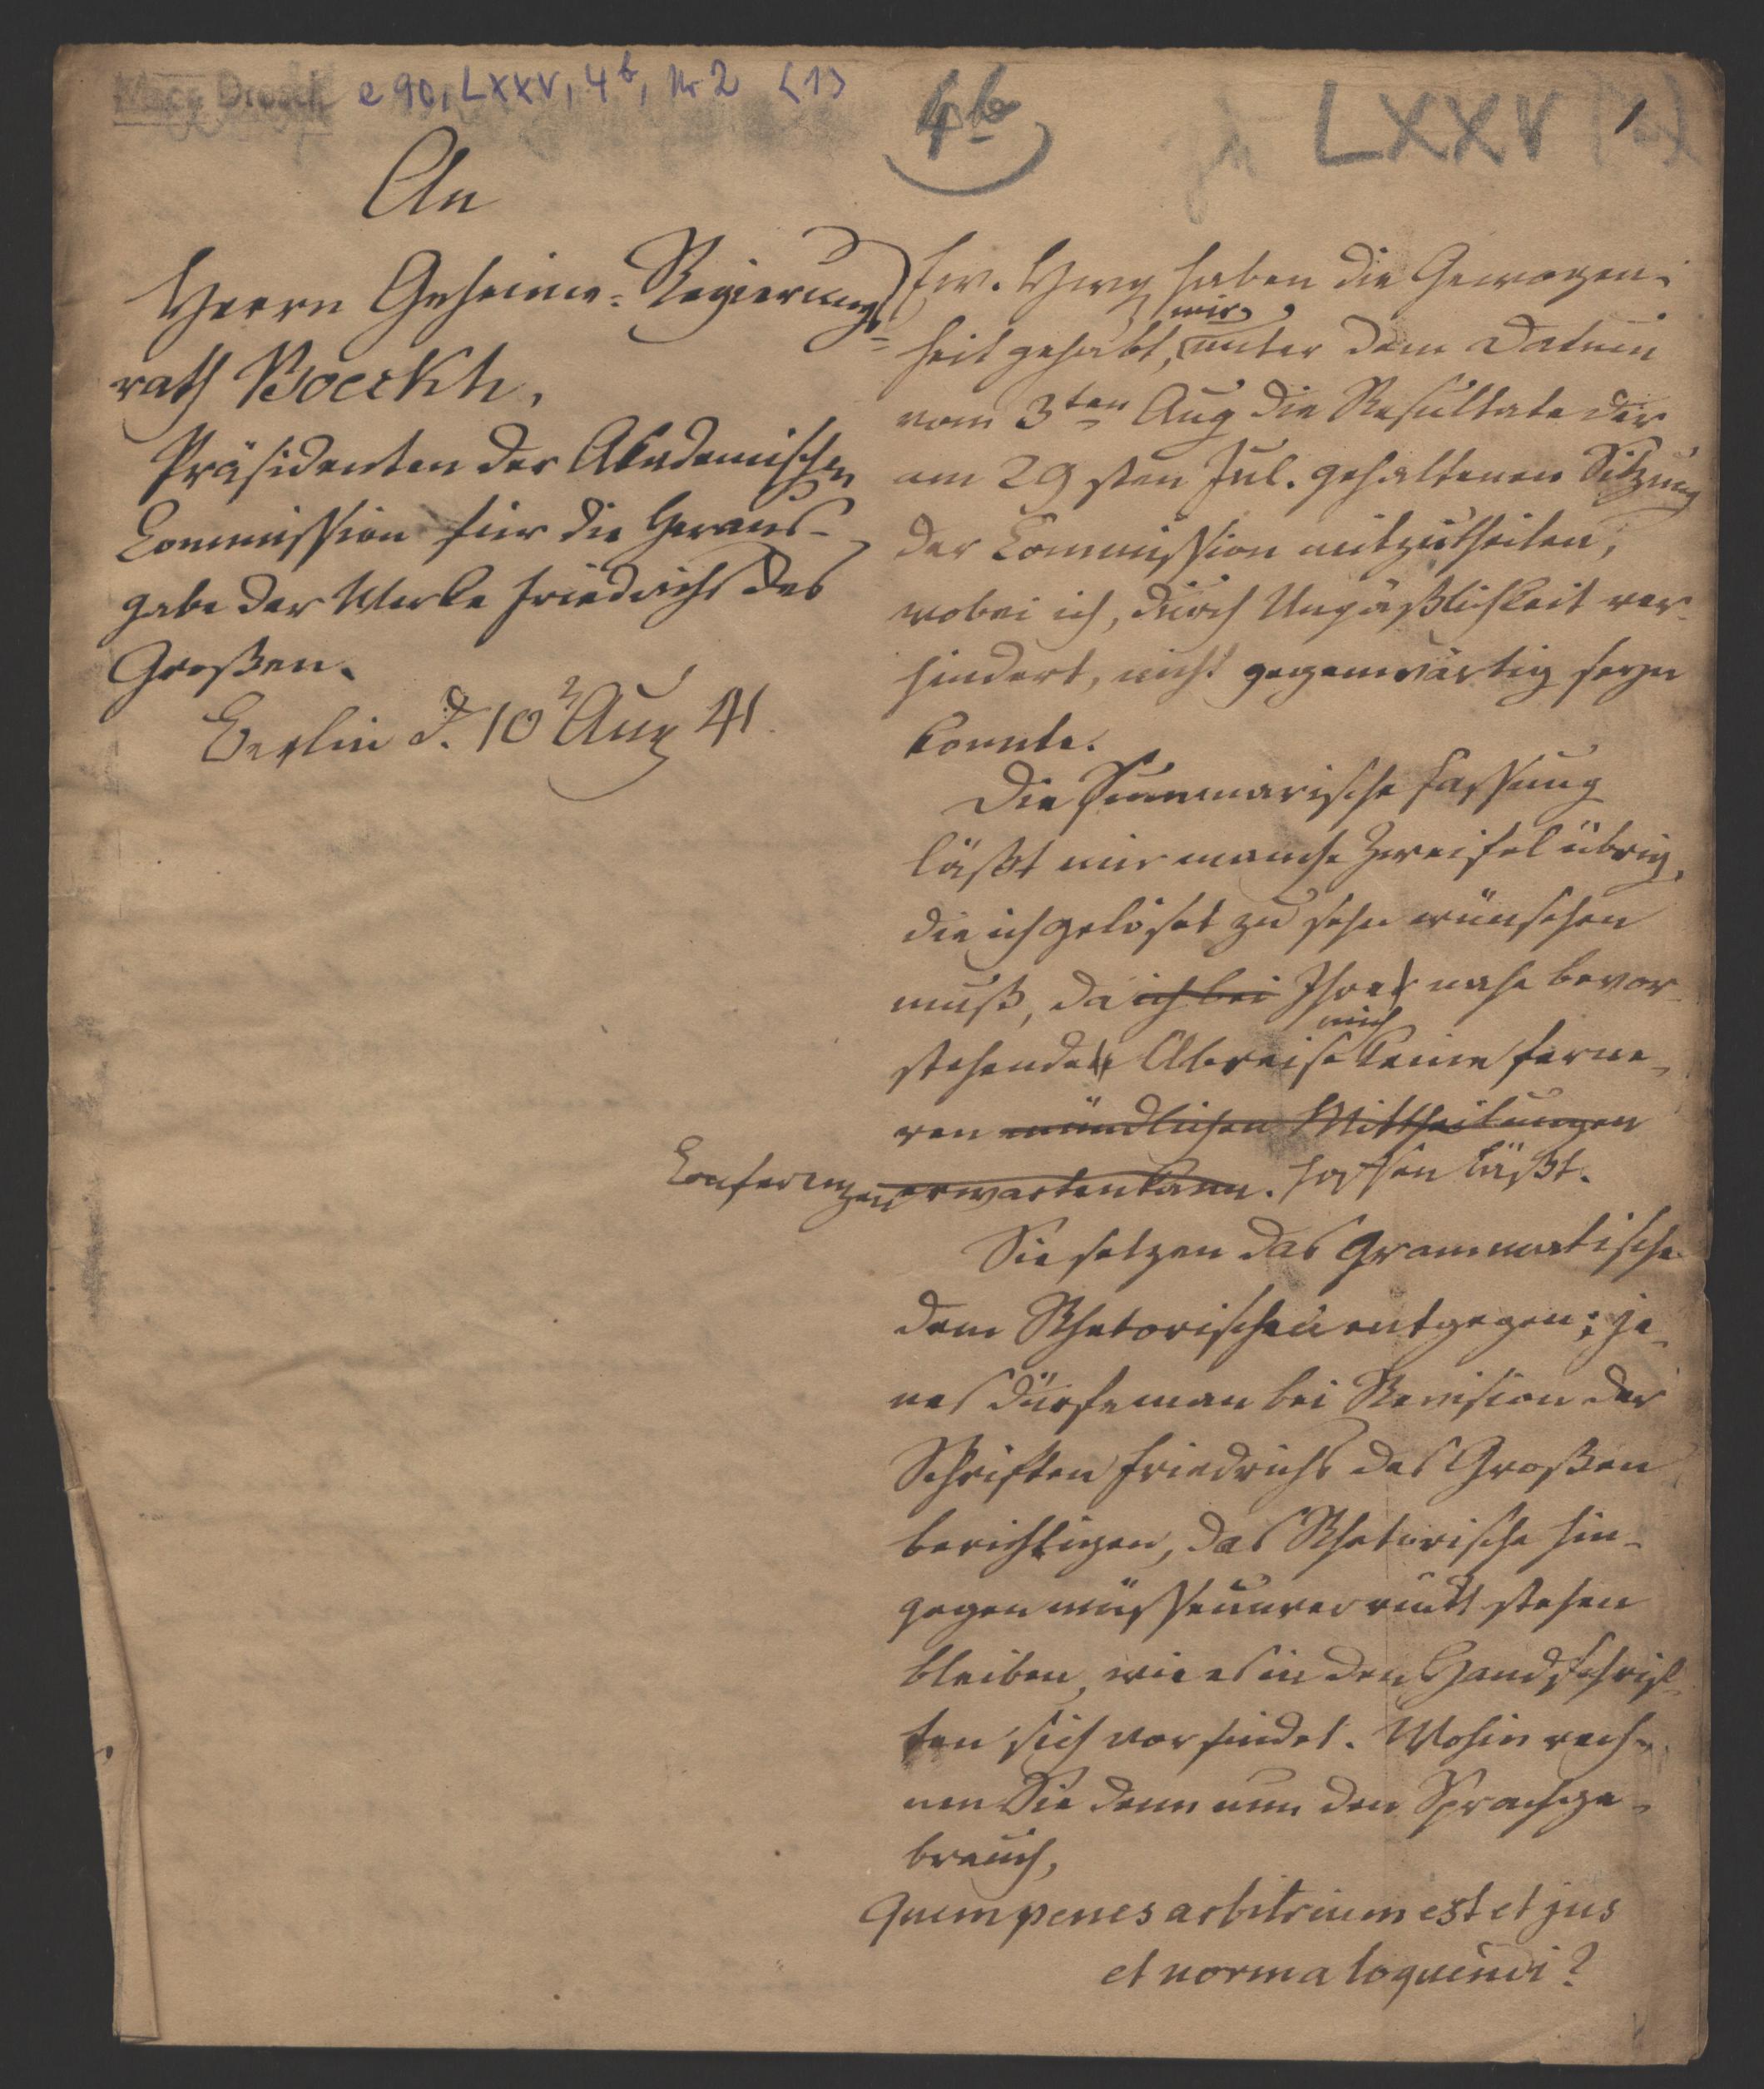 Mscr. Dresd. e 90, LXXV, 4b, Nr 2 (1)
4b
LXXV
1
An
Herrn Geheime-Regierungs-
rath Boeckh,
Präsidenten der Akademischen
Commission für die Heraus-
gabe der Werke Friedrichs des
Großen.
Berlin d. 10 Aug 41.
Ew. Hwg haben die Gewogen-
heit gehabt, mir unter dem Datum
vom 3ten Aug die Resultate der
am 29sten Jul. gehaltenen Sitzung
der Commission mitzutheilen,
wobei ich, durch Unpäßlichkeit ver-
hindert, nicht gegenwärtig seyn
konnte.
Die summarische Fassung
läßt mir manche Zweifel übrig,
die ich gelöset zu sehn wünschen
muß, da ich bei Ihre nahe bevor-
stehende Abreise mich keine ferne-
ren mündlichen Mittheilungen
Conferenzen erwarten kann. hoffen läßt.
Sie setzen das Grammatische
dem Rhetorischen entgegen; je-
nes dürfe man bei Revision der
Schriften Friedrichs des Großen
berichtigen, das Rhetorische hin-
gegen müsse unverrückt stehen
bleiben, wie es in den Handschrif-
ten sich vorfindet. Wohin rech-
nen Sie denn nun den Sprachge-
brauch,
Quem penes arbitrium est et jus
et norma loquendi?